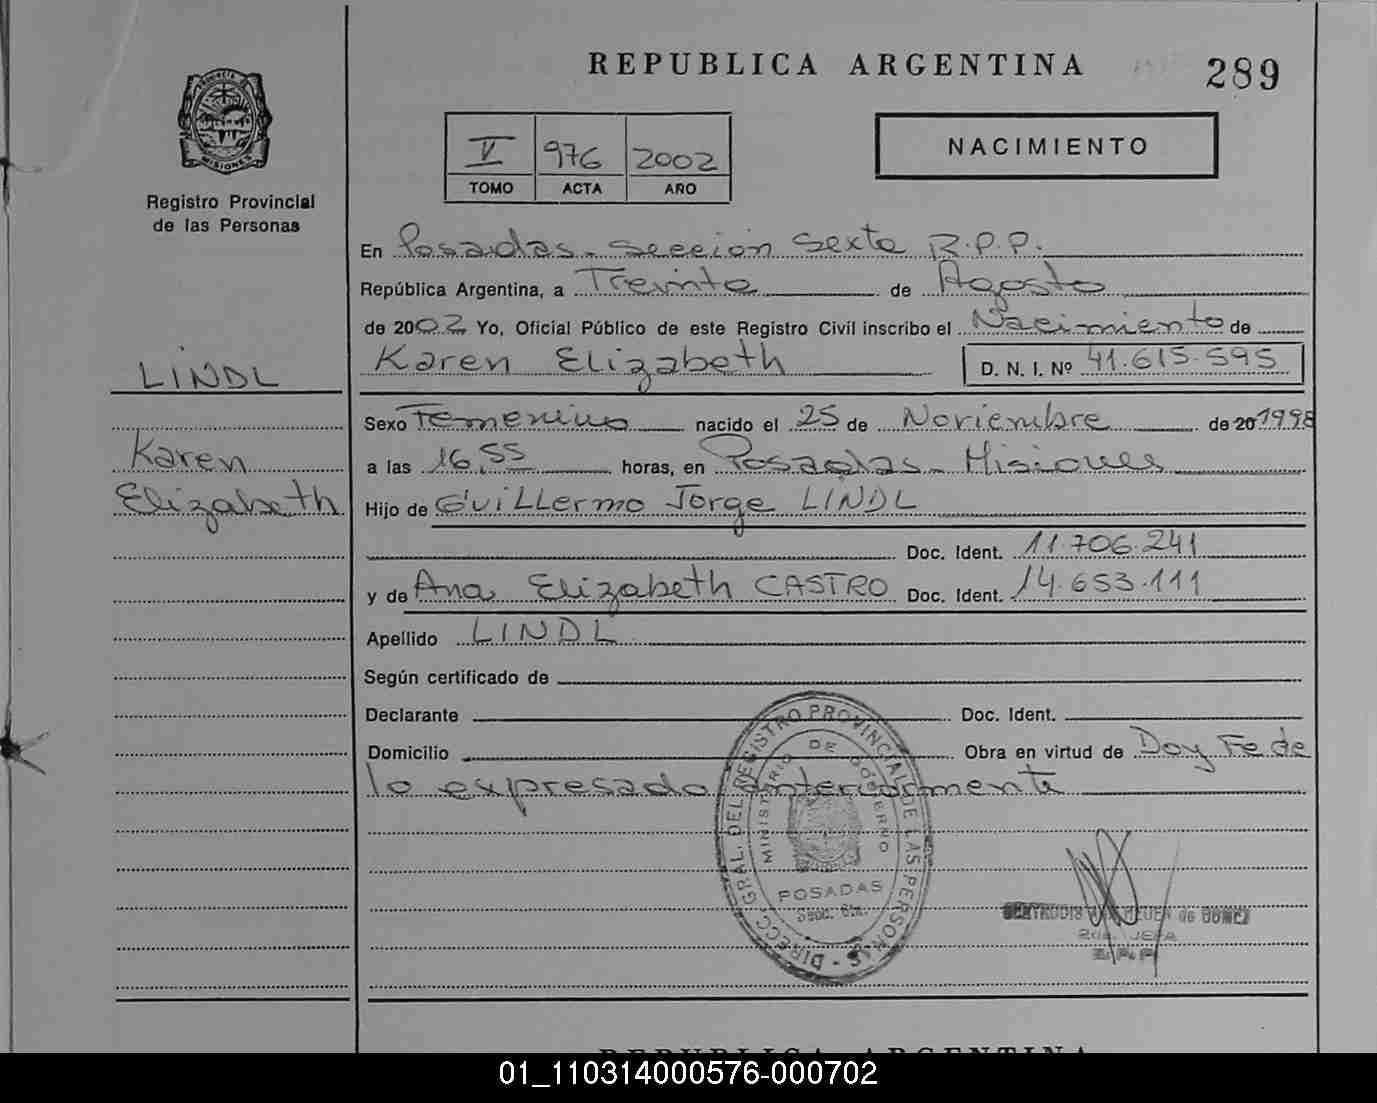 REPUBLICA ARGENTINA
289
PROVINCIA DE MISIONES
Registro Provincial
de las Personas
V 976 2002
TOMO ACTA AÑO
NACIMIENTO
En Posadas - Sección Sexta R.P.P.
República Argentina, a Treinta de Agosto
de 2002 Yo, Oficial Público de este Registro Civil inscribo el Nacimiento de
Karen Elizabeth D. N. I. Nº 41.615.595
LINDL
Karen
Elizabeth
Sexo Femenino nacido el 25 de Noviembre de 20 1998
a las 16,55 horas, en Posadas - Misiones
Hijo de Guillermo Jorge LINDL
Doc. Ident. 11.706.241
y de Ana Elizabeth CASTRO Doc. Ident. 14.653.111
Apellido LINDL
Según certificado de
Declarante Doc. Ident.
Domicilio Obra en virtud de Doy Fe de
lo expresado anteriormente
DIRECC. GRAL. DEL REGISTRO PROVINCIAL DE LAS PERSONAS
MINISTERIO DE GOBIERNO
POSADAS
Secc. 6ta.
GERTRUDIS de GOMEZ
JEFA
R.P.P.
REPUBLICA ARGENTINA
01_110314000576-000702